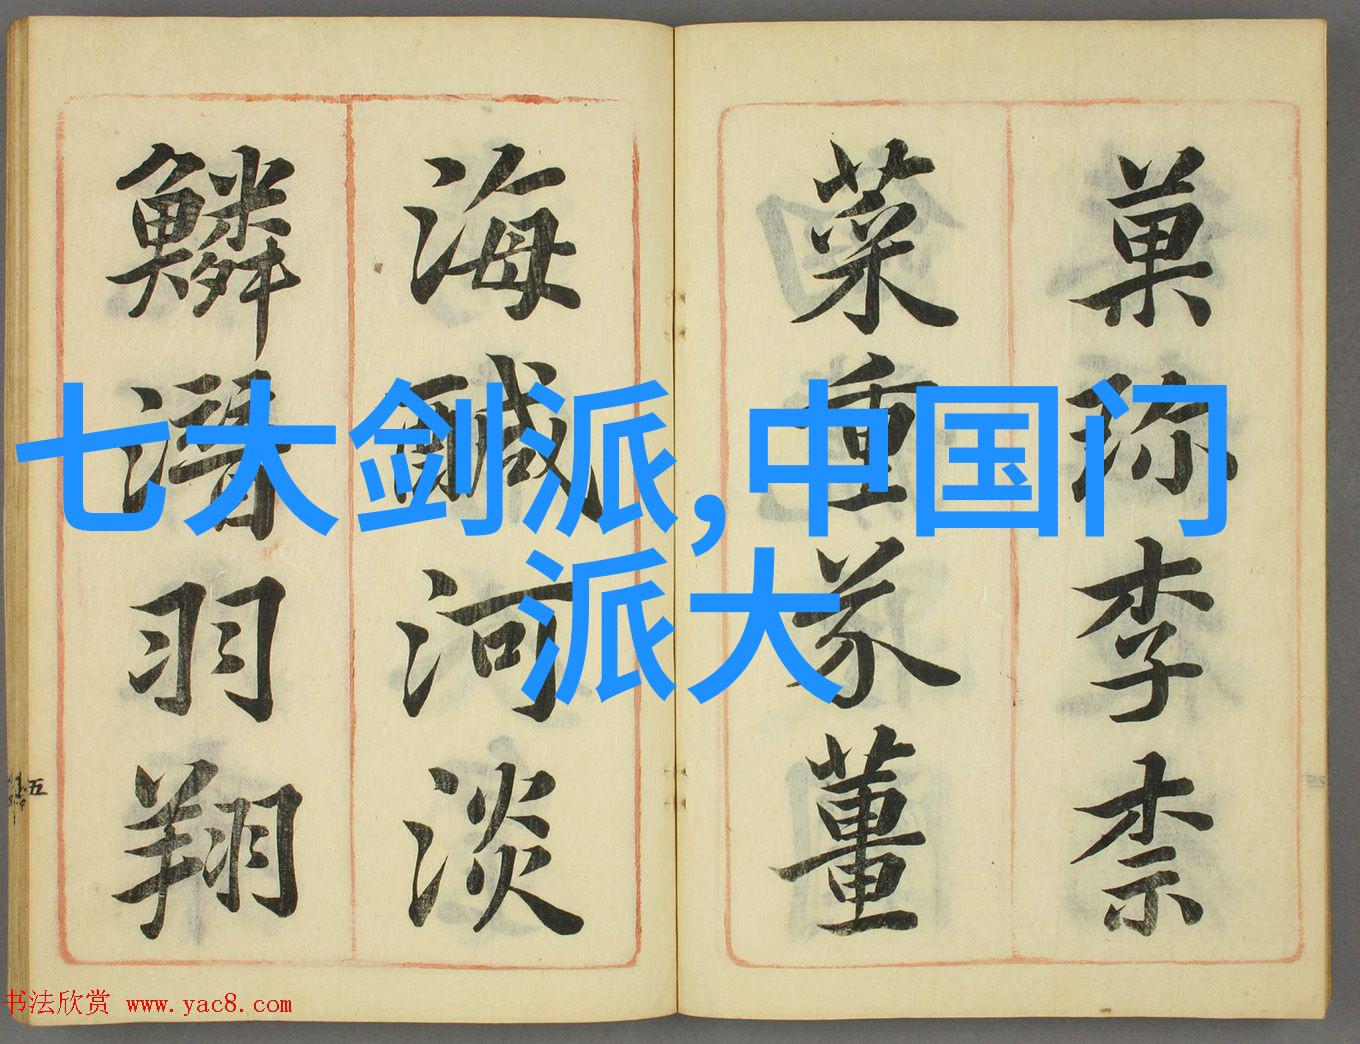 菓珎李柰
菜重芥薑
海鹹河淡
鱗潛羽翔
五
七大剑派,中国门
派大
书法欣赏 www.yac8.com